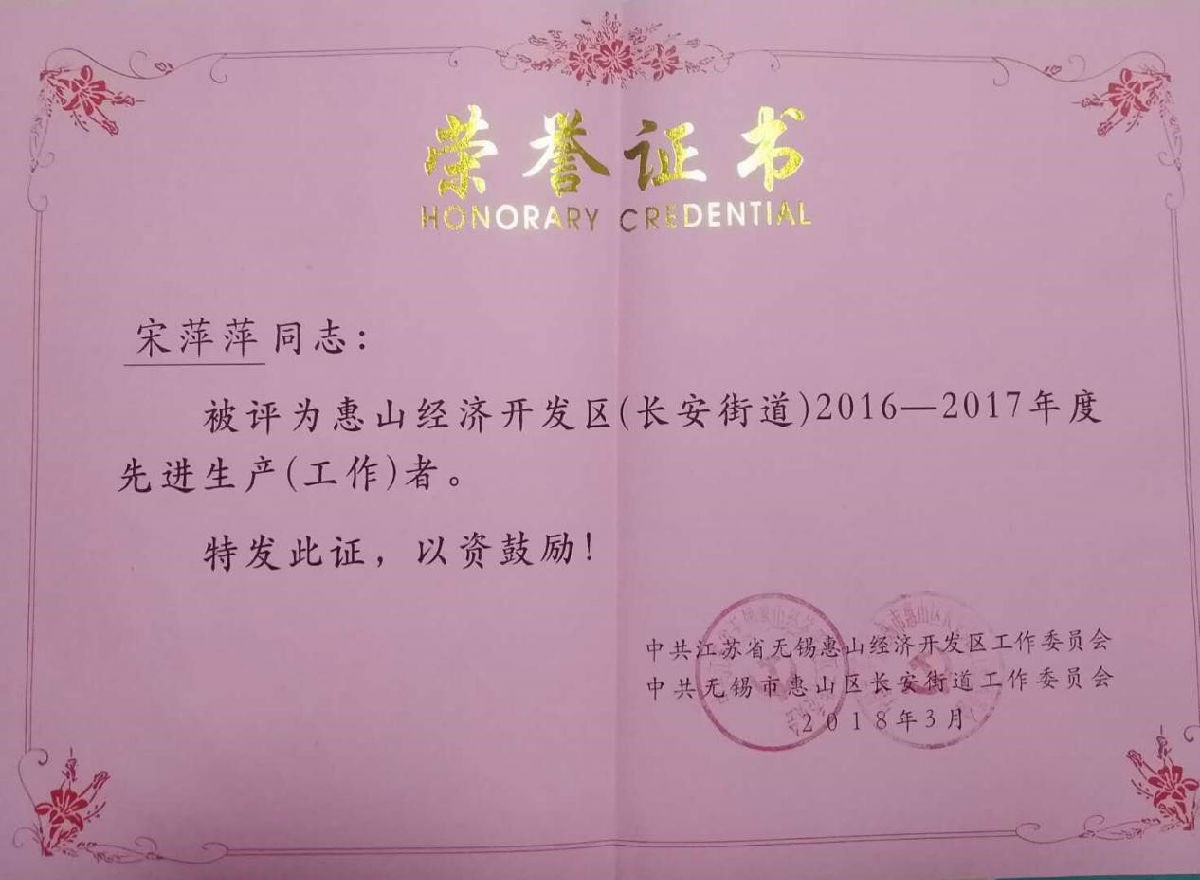 荣誉证书
HONORARY CREDENTIAL
宋萍萍同志：
被评为惠山经济开发区(长安街道)2016—2017年度
先进生产(工作)者。
特发此证，以资鼓励！
中共江苏省无锡惠山经济开发区工作委员会
中共无锡市惠山区长安街道工作委员会
2018年3月